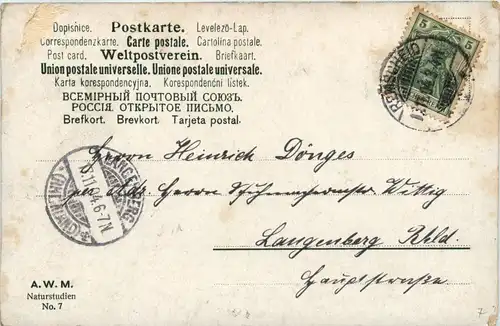 Dopisnice. Postkarte. Levelező-Lap.
Correspondenzkarte. Carte postale. Cartolina postale.
Post card. Weltpostverein. Briefkaart.
Union postale universelle. Unione postale universale.
Karta korespondencyjna. Korespondenční lístek.
ВСЕМІРНЫЙ ПОЧТОВЫЙ СОЮЗЪ.
РОССІЯ. ОТКРЫТОЕ ПИСЬМО.
Brefkort. Brevkort. Tarjeta postal.
5 5
LANGENBERG
6-7N.
(RHEINLAND)
Herrn Heinrich Dönges
per adr Herrn Schuhmachermstr Wittig
Langenberg Rhld.
Hauptstraße.
A.W.M.
Naturstudien
No. 7